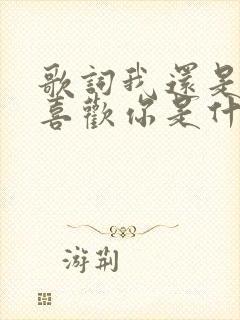 歌詞我還是
喜歡你是什
游荆